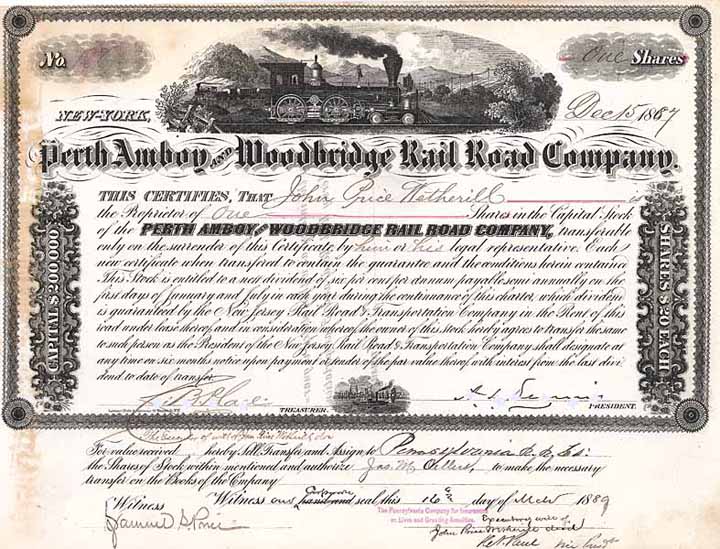 No.
One Shares
NEW-YORK, Dec 15 1887
Perth Amboy AND Woodbridge Rail Road Company.
THIS CERTIFIES, THAT John Price Wetherill of
the Proprietor of One Shares in the Capital Stock
of the PERTH AMBOY AND WOODBRIDGE RAIL ROAD COMPANY, transferable
only on the surrender of this Certificate, by him or his legal representative. Each
new certificate when transferred to contain the guarantee and the conditions herein containe
This Stock is entitled to a net dividend of six per cent per annum payable semi annually on the
first days of January and July in each year during the continuance of this charter, which dividen
is guaranteed by the New Jersey Rail Road & Transportation Company in the Rent of this
road under lease thereof, and in consideration whereof the owner of this stock hereby agrees to transfer the same
to such person as the President of the New Jersey Rail Road & Transportation Company shall designate at
any time on six months notice upon payment or tender of the par value thereof with interest from the last divi
dend to date of transfer.
CAPITAL $200 000
SHARES $50 EACH
TREASURER.
PRESIDENT.
For value received hereby Sell, Transfer and Assign to Pennsylvania R. R. Co.
the Shares of Stock within mentioned and authorize Jas. M. to make the necessary
transfer on the Books of the Company
Witness Witness our Corporate hand and seal this 16 day of 1889
The Pennsylvania Company for Insurances
on Lives and Granting Annuities.
Executors will of
John Price Wetherill decd
Samuel S. Price